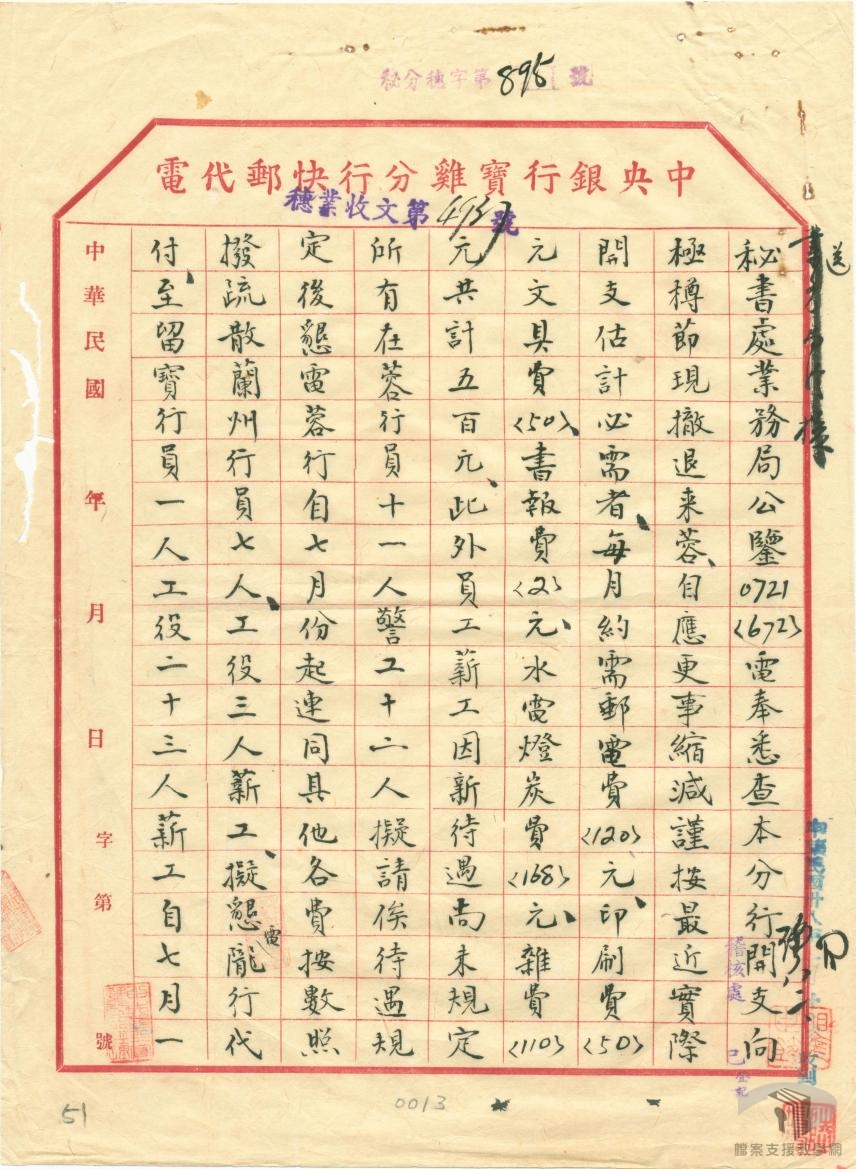 秘分穗字第895號
中央銀行寶雞分行快郵代電
穗業收文第4937號
送
秘書處業務局公鑒0721<672>電奉悉查本分行開支向
極樽節現撤退来蓉、自應更事縮減謹按最近實際
開支估計必需者、每月約需郵電費<120>元、印刷費<50>
元文具費<50>、書報費<2>元、水電燈炭費<168>元、雜費<110>
元共計五百元、此外員工薪工因新待遇尚未規定
所有在蓉行員十一人警工十二人擬請俟待遇規
定後懇電蓉行自七月份起連同其他各費按數照
撥疏散蘭州行員七人、工役三人薪工、擬懇電隴行代
付、至留寶行員一人工役二十三人薪工自七月一
中華民國 年 月 日 字第 號
稽核處 已登記
51
0013
檔案支援教學網